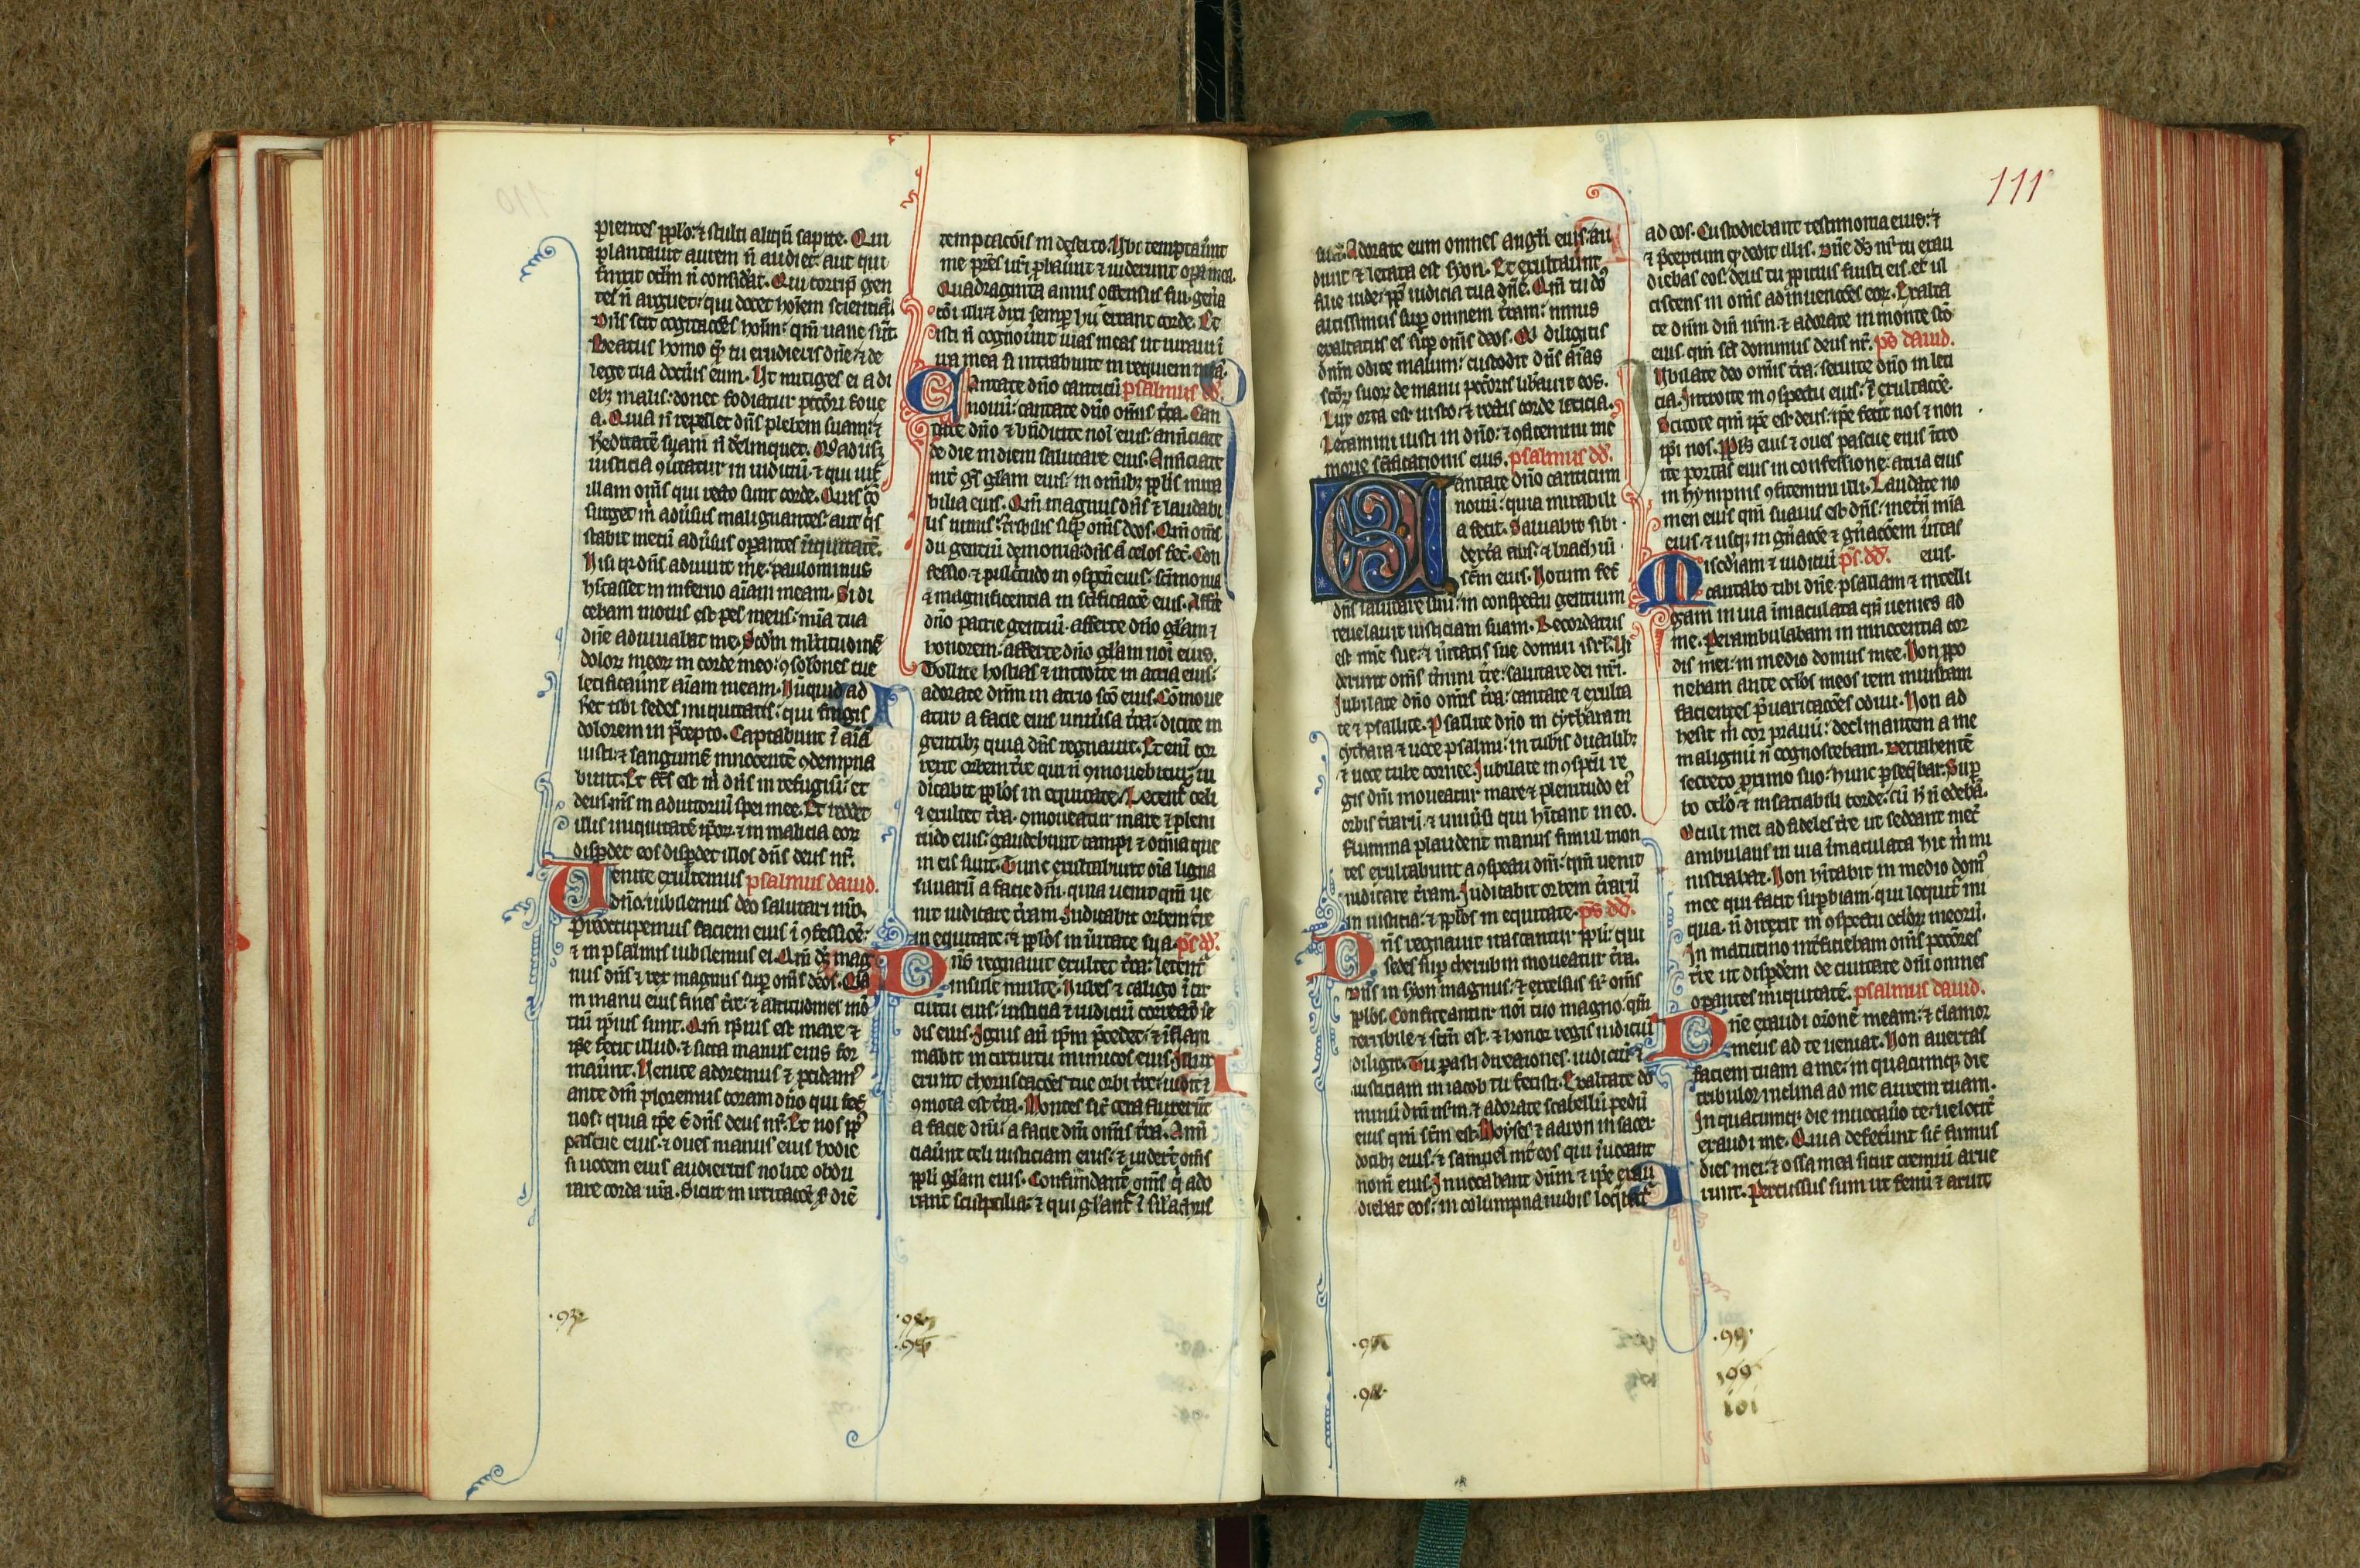 pientes pplo: ⁊ stulti aliqn̄ sapite. Qui
plantauit aurem n̄ audiet: aut qui
finxit oclm n̄ considat. Qui corripit gen
tes n̄ arguet: qui docet hoīem scientiā.
Dn̄s scit cogitacōēs hoīm: qm̄ uane sūt.
Beatus homo que tu erudieris dn̄e: ⁊ de
lege tua docūis eum. Ut mitiges ei a di
ebz malis: donec fodiatur pctōri foue
a. Quia n̄ repellet dn̄s plebem suam: ⁊
hēditatē suam n̄ delinquet. Qd adusz
iusticia ꝯūtatur in iudiciū: ⁊ qui iux̄
illam om̄s qui recto sunt corde. Quis cō
surget m̄ adūsus malignantes: aut q̄s
stabit mecū adūsus opantes iniquitatē.
Nisi q̄r dn̄s adiuuit me: paulominus
hītasset in inferno aīam meam. Si di
cebam motus est pes meus: mīa tua
dn̄e adiuuabat me. Scdm m̄ltitudinē
dolor̄ meor̄ in corde meo: ꝯsolōnes tue
letificaūnt aīam meam. Nūquid ad
heret tibi sedes iniquitatis: qui fingis
dolorem in p̄cepto. Captabunt ī aīā
iusti: ⁊ sanguinē innocentē ꝯdempna
bunt. Et fc̄s est m̄ dn̄s in refugiū: et
deus m̄s in adiutoriū spei mee. Et reddet
illis iniquitatē ipor̄: ⁊ in malicia eor̄
disp̄det eos disp̄det illos dn̄s deus nr̄.
Uenite exultemus psalmus dauid.
dn̄o: iubilemus deo salutari nr̄o.
Preoccupemus faciem eius ī ꝯfessiōe:
⁊ in psalmis iubilemus ei. Qm̄ ds̄ mag
nus dn̄s ⁊ rex magnus sup̄ om̄s deos. Qia
in manu eius fines tr̄e: ⁊ altitudines mō
tiū ip̄ius sunt. Qm̄ ip̄ius est mare ⁊
ip̄e fecit illud: ⁊ sicca manus eius for
maūnt. Uenite adoremus ⁊ pcidam
ante dm̄ ploremus coram dn̄o qui fec̄
nos: quia ip̄e ē dn̄s deus nr̄. Et nos pp̄
pascue eius: ⁊ oues manus eius hodie
si uocem eius audieritis nolite obdu
rare corda ur̄a. Sicut in irritacōe s̄ diē
.93.
temptacōis in deserto. Ubi temptaūnt
me p̄res ur̄i p̄baūnt ⁊ uiderunt opa mea.
Quadraginta annis offensus fui gn̄a
cōi illi: ⁊ dixi semp̄ hii errant corde. Et
isti n̄ cognoūnt uias meas ut iuraui ī
ira mea si intrabunt in requiem meā.
Cantate dn̄o canticū psalmus dd̄.
nouū: cantate dn̄o om̄is tr̄a. Can
tate dn̄o ⁊ bn̄dicite noī eius: anūciate
de die in diem salutare eius. Anūciate
int̄ gēs glam eius: in om̄ibz pplis mira
bilia eius. Qm̄ magnus dn̄s ⁊ laudabi
lis nimis: tr̄ibilis sup̄ om̄s deos. Qm̄ om̄s
dii gentiū demonia: dn̄s ā celos fec̄. Con
fessio ⁊ pulc̄tudo in ꝯspctū eius: scīmonia
⁊ magnificentia in scīficacōe eius. Affte
dn̄o patrie gentiū: afferte dn̄o gl̄am ⁊
honorem: afferte dn̄o gl̄am noī eius.
Tollite hostias ⁊ introite in atria eius:
adorate dn̄m in atrio scō eius. Cōmoue
atur a facie eius uniūsa tr̄a: dicite in
gentibz quia dn̄s regnauit. Et enī cor
rexit orbem tr̄e qui n̄ ꝯmouebitur: iu
dicabit pplos in equitate. Letent̄ celi
⁊ exultet tr̄a: ꝯmoueatur mare ⁊ pleni
tudo eius: gaudebunt campi ⁊ om̄ia que
in eis sunt. Tunc exultabunt oīa ligna
siluarū a facie dn̄i: quia uenit qm̄ ue
nit iudicare tr̄am. Iudicabit orbem tr̄e
in equitate: ⁊ pplos in ūitate sua. ps̄ dd̄.
Dn̄s regnauit exultet tr̄a: letent̄
insule multe. Nubes ⁊ caligo ī cir
cuitu eius: iusticia ⁊ iudiciū correctō se
dis eius. Ignis an̄ ip̄m p̄cedet: ⁊ īflam
mabit in circuitu inimicos eius. Illux
erunt choruscacōes tue orbi tr̄e: uidit ⁊
ꝯmota est tr̄a. Montes sic̄ cera fluxerūt
a facie dn̄i: a facie dn̄i om̄is tr̄a. Anū
ciaūnt celi iusticiam eius: ⁊ uider̄t om̄s
ppli gl̄am eius. Confundant̄ om̄s q̄ ado
rant sculptilia: ⁊ qui gl̄iant̄ ī silacḥris
111
suis. Adorate eum omnes angli eius: au
diuit ⁊ letata est syon. Et exultaūnt
filie iude: pp̄ iudicia tua dn̄e. Qm̄ tu dn̄s
altissimus sup̄ omnem tr̄am: nimis
exaltatus es sup̄ om̄s deos. Qi diligitis
dn̄m odite malum: custodit dn̄s aīas
scōr̄ suor̄ de manu pctōris libauit eos.
Lux orta est iusto: ⁊ rectis corde leticia.
Letamini iusti in dn̄o: ⁊ ꝯfitemini me
morie scīficationis eius. psalmus dd̄.
Cantate dn̄o canticum
nouū: quia mirabili
a fecit. Saluabit sibi
dextā eius: ⁊ brachiū
scm̄ eius. Notum fec̄
dn̄s salutare suū: in conspectu gentium
reuelauit iusticiam suam. Recordatus
est mīe sue: ⁊ ūitatis sue domui isrl. Ui
derunt om̄s t̄mini tr̄e: salutare dei nr̄i.
Iubilate dn̄o om̄is tr̄a: cantate ⁊ exulta
te ⁊ psallite. Psallite dn̄o in cytharam
cythara ⁊ uoce psalmi: in tubis ductilibz
⁊ uoce tube cornee. Iubilate in ꝯspctū re
gis dn̄i moueatur mare ⁊ plenitudo ei
orbis tr̄arū: ⁊ uniūsi qui hītant in eo.
Flumina plaudent manus simul mon
tes exultabunt a ꝯspectu dn̄i: qm̄ uenit
iudicare tr̄am. Iudicabit orbem tr̄arū
in iusticia: ⁊ pplos in equitate. ps̄ dd̄.
Dn̄s regnauit irascantur ppli: qui
sedes sup̄ cherubin moueatur tr̄a.
Dn̄s in syon magnus: ⁊ excelsus sr̄ om̄s
pplos. Confiteantur noī tuo magno: qm̄
terribile ⁊ scm̄ est: ⁊ honor regis iudiciū
diligit. Tu parasti directiones: iudiciū ⁊
iusticiam in iacob tu fecisti. Exaltate do
minū dm̄ nr̄m: ⁊ adorate scabellū pedū
eius qm̄ scm̄ est. Moyses ⁊ aaron in sacer
dotibz eius: ⁊ samuel int̄ eos qui īuocant
nom̄ eius. Inuocabant dn̄m ⁊ ip̄e exau
diebat eos: in columpna nubis loq̄bat̄
ad eos. Custodiebant testimonia eius: ⁊
⁊ p̄ceptum qd̄ dedit illis. Dn̄e ds̄ nr̄ tu exau
diebas eos: deus tu ppicius fuisti eis: et ul
ciscens in om̄s adinuencōes eor̄. Exalta
te dn̄m dm̄ nr̄m: ⁊ adorate in monte scō
eius: qm̄ scs̄ dominus deus nr̄. ps̄ dauid.
Iubilate deo om̄is tr̄a: seruite dn̄o in leti
cia. Introite in ꝯspectu eius: ⁊ exultacōe.
Scitote qm̄ ip̄e est deus: ip̄e fecit nos ⁊ non
ip̄i nos. Pp̄ls eius ⁊ oues pascue eius ītro
ite portas eius in confessione: atria eius
in hympnis ꝯfitemini illi. Laudate no
men eius qm̄ suauis est dn̄s: inet̄n̄ mīa
eius: ⁊ usqz in gn̄acōe ⁊ gn̄acōem ūitas
eius.
Miscd̄iam ⁊ iudiciū ps̄ dd̄.
cantabo tibi dn̄e: psallam ⁊ intelli
gam in uia īmaculata qn̄ uenies ad
me. Perambulabam in innocentia cor
dis mei: in medio domus mee. Non ppo
nebam ante oclos meos rem iniustam
facientes p̄uaricacōes odiui. Non ad
hesit m̄ cor prauū: declinantem a me
malignū n̄ cognoscebam. Detrahentē
secreto pximo suo: hunc pseq̄bar. Sup̄
bo oclo ⁊ insaciabili corde: cū h̄ n̄ edebā.
Oculi mei ad fideles tr̄e ut sedeant mec̄
ambulans in uia īmaculata hic m̄ mi
nistrabat. Non hītabit in medio dom
mee qui facit sup̄biam: qui loquit̄ ini
qua: n̄ direxit in ꝯspectu oclor̄ meorū.
In matutino int̄ficiebam om̄s pctōres
tr̄e ut disp̄dem de ciuitate dn̄i omnes
opantes iniquitatē. psalmus dauid.
Dn̄e exaudi orōnē meam: ⁊ clamor
meus ad te ueniat. Non auertas
faciem tuam a me: in quacumqz die
tribulor inclina ad me aurem tuam.
In quacumqz die inuocauo te: uelocit̄
exaudi me. Quia defecūnt sic̄ fumus
dies mei: ⁊ ossa mea sicut cremiū arue
runt. Percussus sum ut fenū ⁊ aruit
.99.
101